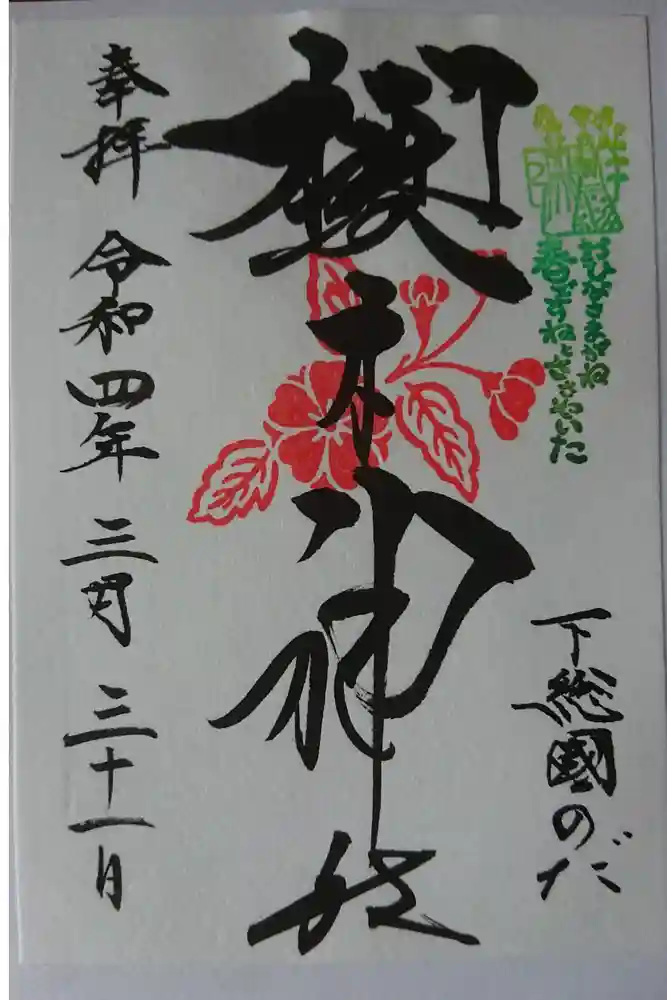 おひなさまがね
春ですねとささやいた
下総國のだ
櫻木神社
奉拝 令和四年 三月 三十一日